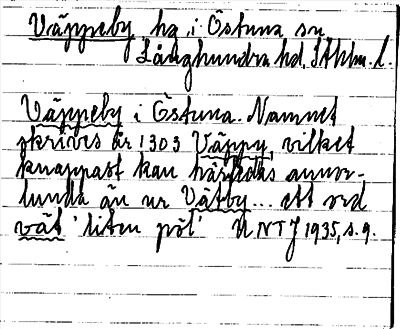 Väppeby hg i Östuna sn
Långhundra hd, Sthlm. l.
Väppeby i Östuna. Namnet
skrives år 1303 Väppy, vilket
knappast kan härledas annor-
lunda än ur Vätby... ett ord
vät 'liten pöl' UNTJ 1935, s. 9.